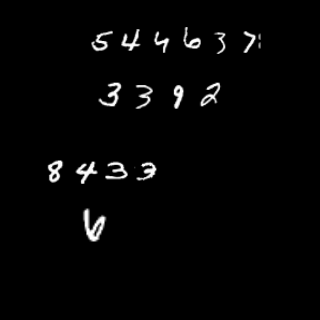 544637
3392
8433
6